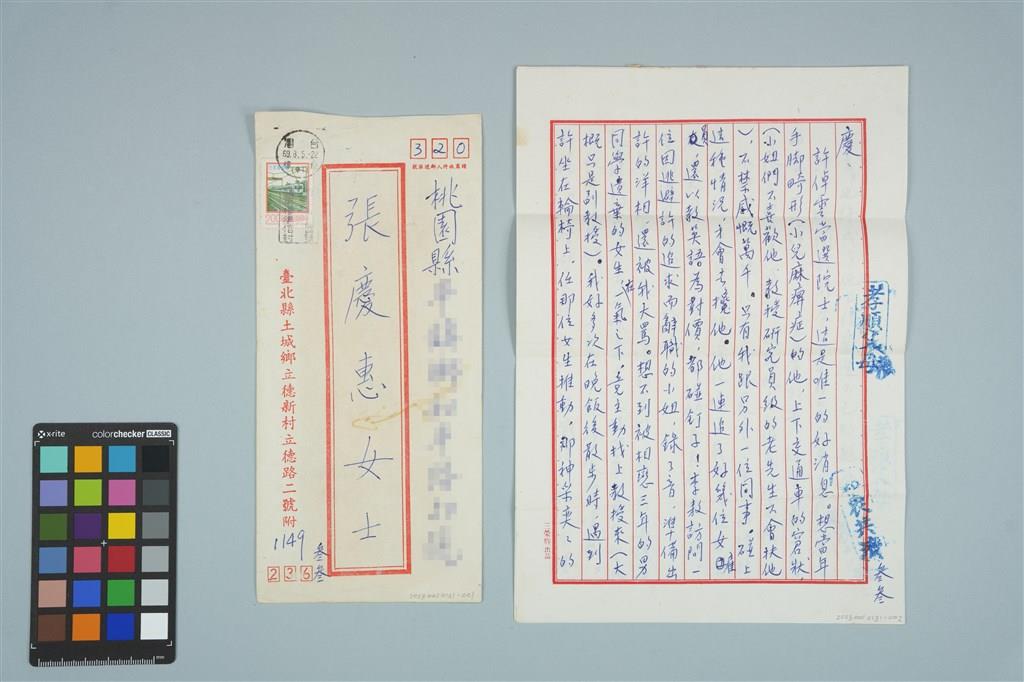 320
郵遞區號
桃園縣
張慶惠女士
臺北縣土城鄉立德新村立德路二號附
1149
叁叁
236
台
69.8.5
200
慶:
許倬雲當選院士,這是唯一的好消息。想當年
手脚畸形(小兒麻痺症)的他,上下交通車的窘狀,
(小姐們不喜歡他,教授研究員級的老先生不會扶他
),不禁感慨萬千。只有我跟另外一位同事。碰上
這種情況,才會去攙他。他一連追了好幾位女
還以教英語為對價,都碰釘子!李敖訪問一
位因逃避許的追求而辭職的小姐,錄了音,準備出
許的洋相,還被我大罵。想不到被相戀三年的男
同學遺棄的女生,在一氣之下,竟主動找上教授來(大
概只是副教授)。我好多次在晚飯後散步時,遇到
許坐在輪椅上,任那位女生推動,那神采奕々的
孝順父母
叁叁
三榮牌出品
x-rite
colorchecker CLASSIC
mm